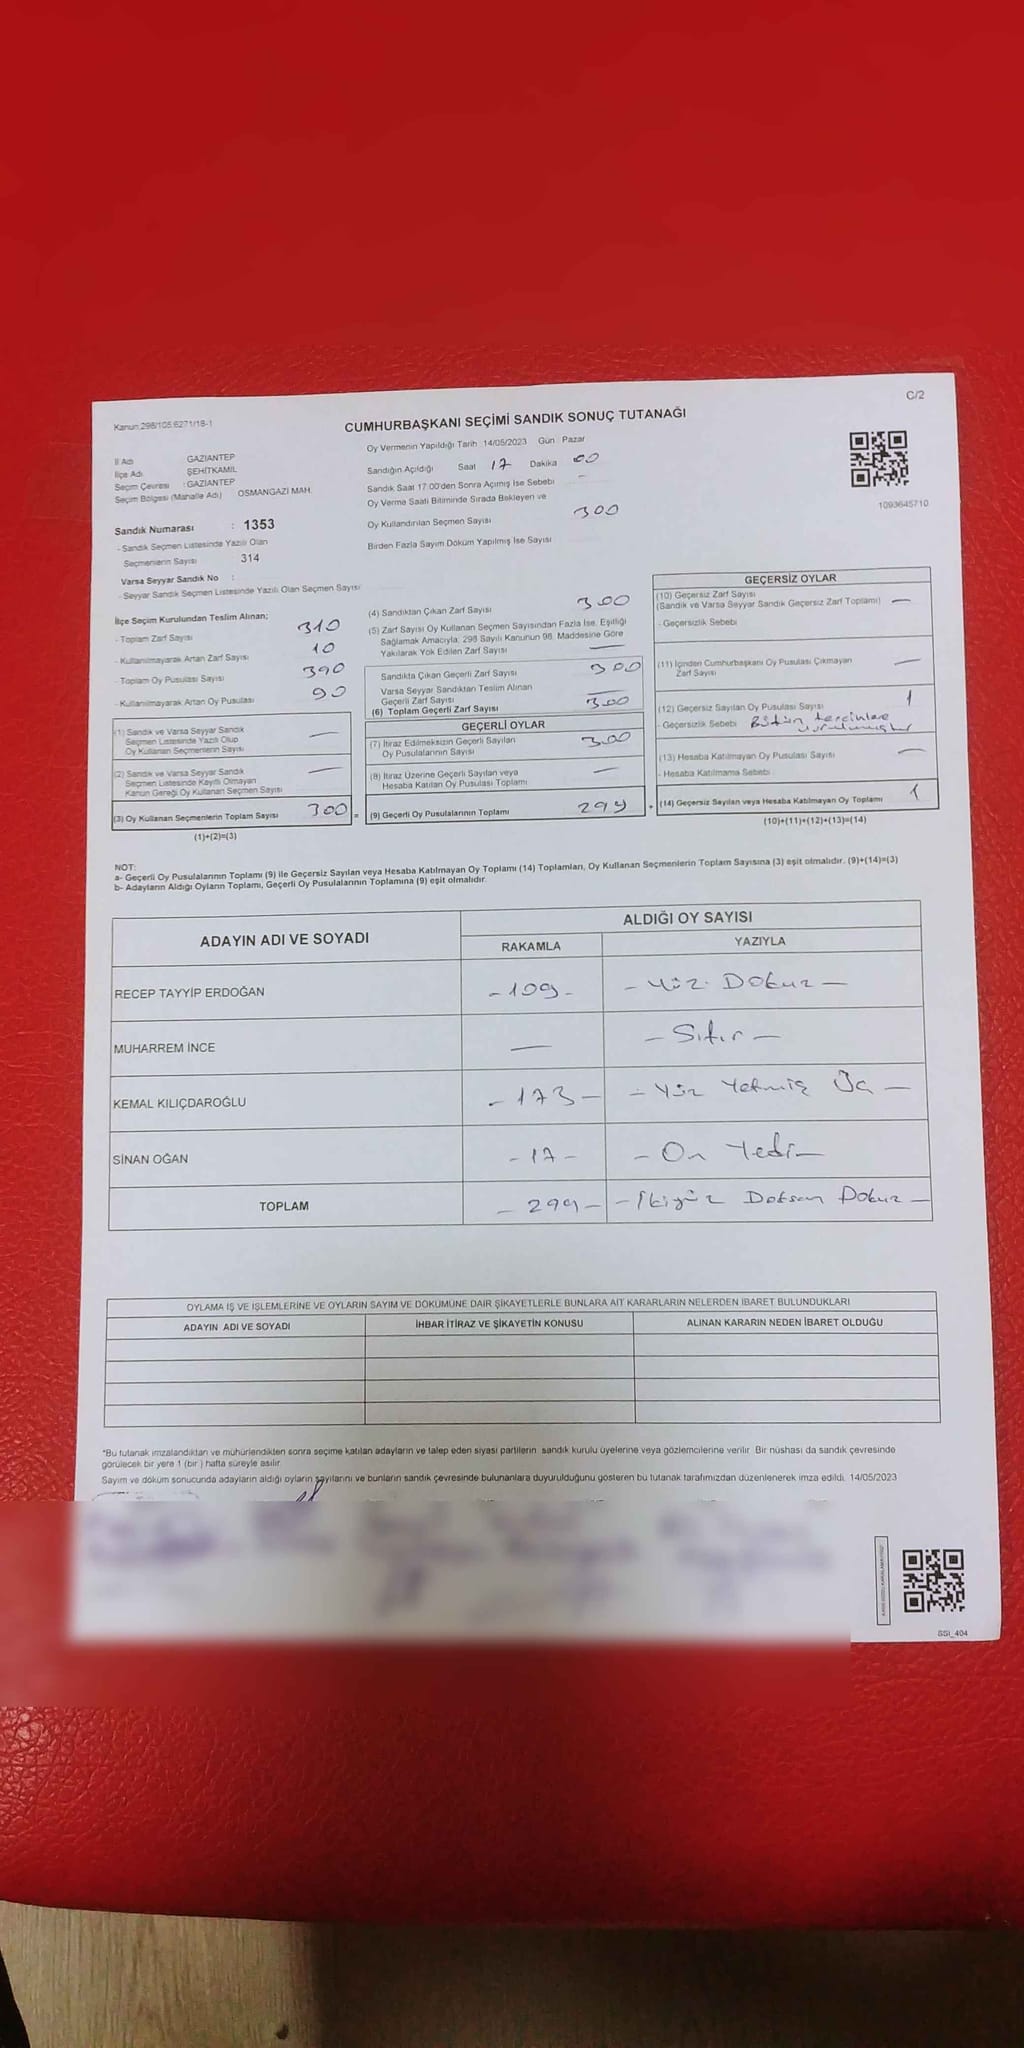 C/2
Kanun 298/105.6271/18-1
CUMHURBAŞKANI SEÇİMİ SANDIK SONUÇ TUTANAĞI
Oy Vermenin Yapıldığı Tarih 14/05/2023 Gün Pazar
İl Adı GAZİANTEP
İlçe Adı ŞEHİTKAMİL
Seçim Çevresi : GAZİANTEP
Seçim Bölgesi (Mahalle Adı) OSMANGAZİ MAH.
Sandığın Açıldığı Saat 17 Dakika 00
Sandık Saat 17:00'den Sonra Açılmış İse Sebebi
Oy Verme Saati Bitiminde Sırada Bekleyen ve
Oy Kullandırılan Seçmen Sayısı 300
Birden Fazla Sayım Döküm Yapılmış İse Sayısı
1093645710
Sandık Numarası : 1353
- Sandık Seçmen Listesinde Yazılı Olan
Seçmenlerin Sayısı 314
Varsa Seyyar Sandık No :
- Seyyar Sandık Seçmen Listesinde Yazılı Olan Seçmen Sayısı
İlçe Seçim Kurulundan Teslim Alınan;
- Toplam Zarf Sayısı 310
- Kullanılmayarak Artan Zarf Sayısı 10
- Toplam Oy Pusulası Sayısı 390
- Kullanılmayarak Artan Oy Pusulası 90
(1) Sandık ve Varsa Seyyar Sandık
Seçmen Listesinde Yazılı Olup
Oy Kullanan Seçmenlerin Sayısı —
(2) Sandık ve Varsa Seyyar Sandık
Seçmen Listesinde Kayıtlı Olmayan
Kanun Gereği Oy Kullanan Seçmen Sayısı —
(3) Oy Kullanan Seçmenlerin Toplam Sayısı 300 =
(1)+(2)=(3)
(4) Sandıktan Çıkan Zarf Sayısı 300
(5) Zarf Sayısı Oy Kullanan Seçmen Sayısından Fazla İse, Eşitliği
Sağlamak Amacıyla; 298 Sayılı Kanunun 98. Maddesine Göre
Yakılarak Yok Edilen Zarf Sayısı —
Sandıkta Çıkan Geçerli Zarf Sayısı 300
Varsa Seyyar Sandıktan Teslim Alınan
Geçerli Zarf Sayısı —
(6) Toplam Geçerli Zarf Sayısı 300
GEÇERLİ OYLAR
(7) İtiraz Edilmeksizin Geçerli Sayılan
Oy Pusulalarının Sayısı 300
(8) İtiraz Üzerine Geçerli Sayılan veya
Hesaba Katılan Oy Pusulası Toplamı —
(9) Geçerli Oy Pusulalarının Toplamı 299 +
GEÇERSİZ OYLAR
(10) Geçersiz Zarf Sayısı
(Sandık ve Varsa Seyyar Sandık Geçersiz Zarf Toplamı) —
- Geçersizlik Sebebi
(11) İçinden Cumhurbaşkanı Oy Pusulası Çıkmayan
Zarf Sayısı —
(12) Geçersiz Sayılan Oy Pusulası Sayısı 1
- Geçersizlik Sebebi Bütün tercihlere
vurulmuştur
(13) Hesaba Katılmayan Oy Pusulası Sayısı —
- Hesaba Katılmama Sebebi
(14) Geçersiz Sayılan veya Hesaba Katılmayan Oy Toplamı 1
(10)+(11)+(12)+(13)=(14)
NOT:
a- Geçerli Oy Pusulalarının Toplamı (9) ile Geçersiz Sayılan veya Hesaba Katılmayan Oy Toplamı (14) Toplamları, Oy Kullanan Seçmenlerin Toplam Sayısına (3) eşit olmalıdır. (9)+(14)=(3)
b- Adayların Aldığı Oyların Toplamı, Geçerli Oy Pusulalarının Toplamına (9) eşit olmalıdır.
ADAYIN ADI VE SOYADI
ALDIĞI OY SAYISI
RAKAMLA YAZIYLA
RECEP TAYYİP ERDOĞAN -109- - Yüz Dokuz -
MUHARREM İNCE — - Sıfır -
KEMAL KILIÇDAROĞLU -173- - Yüz Yetmiş Üç -
SİNAN OĞAN -17- - On Yedi -
TOPLAM - 299 - - İkiyüz Doksan Dokuz -
OYLAMA İŞ VE İŞLEMLERİNE VE OYLARIN SAYIM VE DÖKÜMÜNE DAİR ŞİKAYETLERLE BUNLARA AİT KARARLARIN NELERDEN İBARET BULUNDUKLARI
ADAYIN ADI VE SOYADI İHBAR İTİRAZ VE ŞİKAYETİN KONUSU ALINAN KARARIN NEDEN İBARET OLDUĞU
*Bu tutanak imzalandıktan ve mühürlendikten sonra seçime katılan adayların ve talep eden siyasi partilerin sandık kurulu üyelerine veya gözlemcilerine verilir. Bir nüshası da sandık çevresinde
görülecek bir yere 1 (bir ) hafta süreyle asılır.
Sayım ve döküm sonucunda adayların aldığı oyların sayılarını ve bunların sandık çevresinde bulunanlara duyurulduğunu gösteren bu tutanak tarafımızdan düzenlenerek imza edildi. 14/05/2023
SSI_404